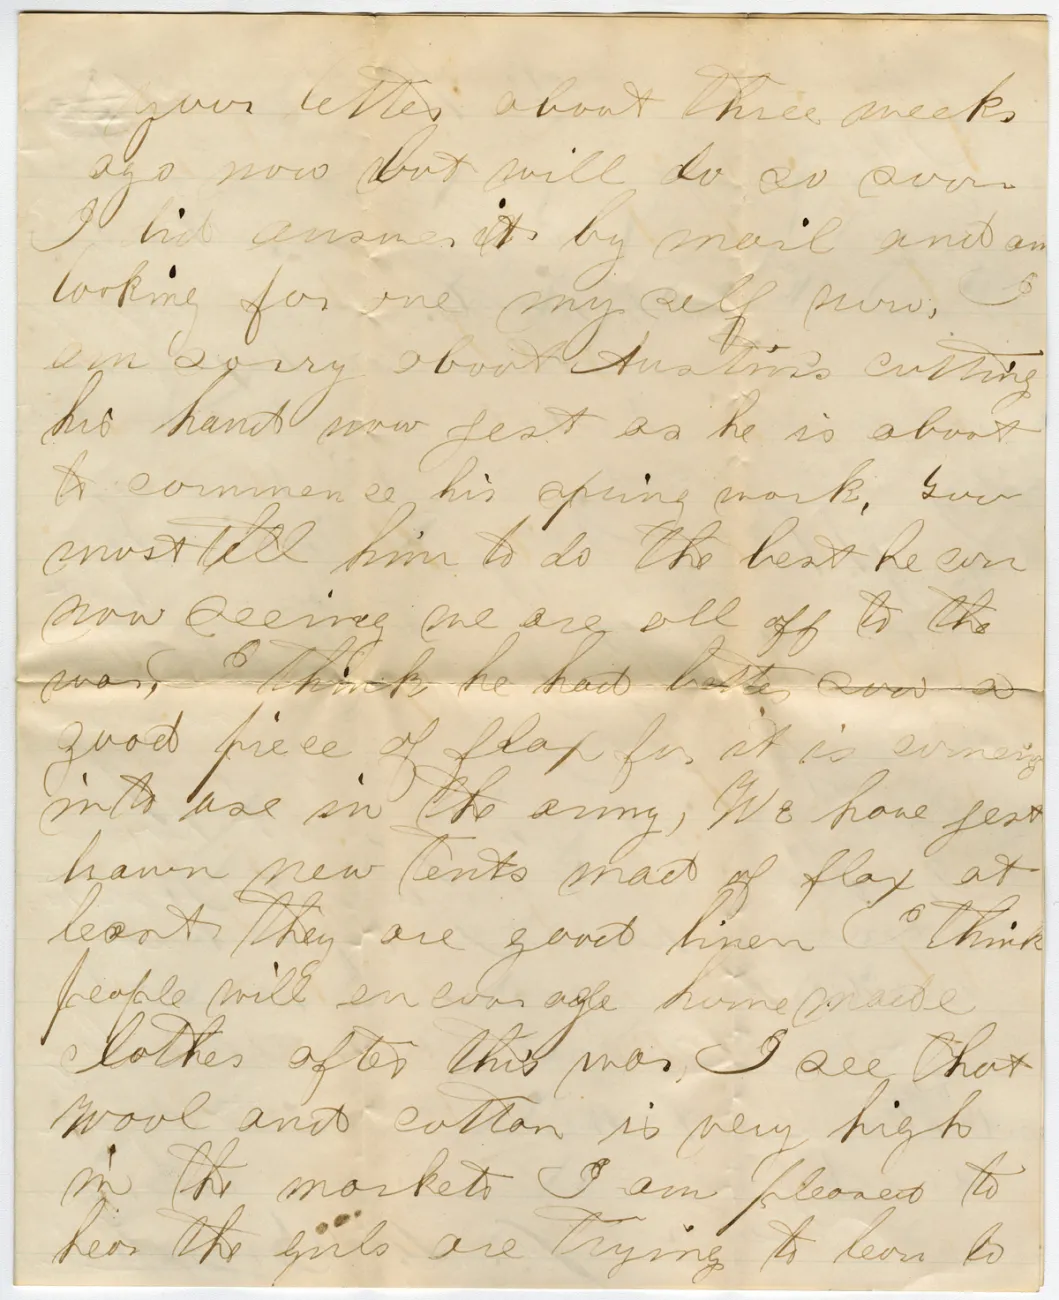 your letter about three weeks
ago now but will do so soon
I did answer it by mail and am
looking for one my self now, I
am sorry about Austins cutting
his hand now jest as he is about
to commence his spring work, You
must tell him to do the best he can
now seeing we are all off to the
war, I think he had better sow a
good piece of flax for it is coming
into use in the army, We have jest
drawn new tents mad of flax at
least they are good linen I think
people will encourage home made
clothes after this war, I see that
Wool and cotton is very high
in the markets I am pleased to
hear the girls are trying to learn to